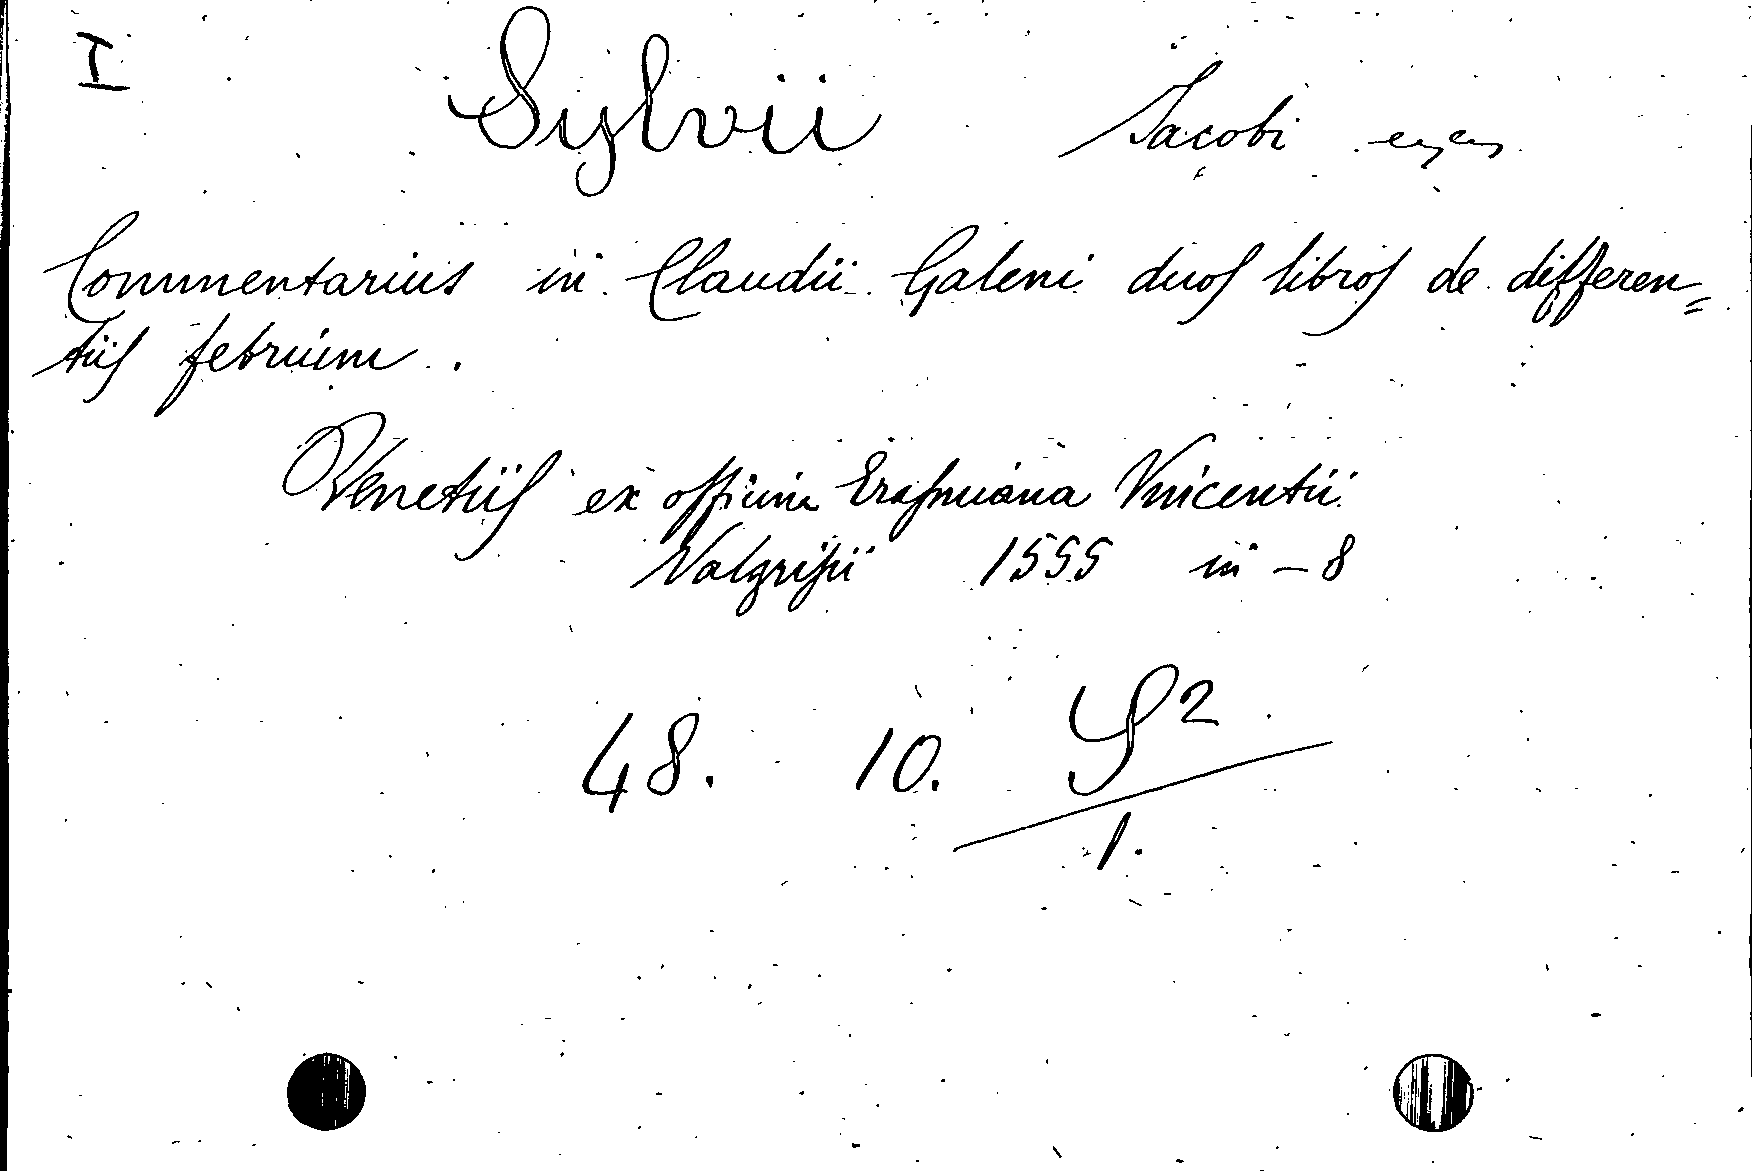 I Sylvii Jacobi
Commentarius in Claudii Galeni duos libros de differen=
tiis februum.
Venetiis ex officina Erasmiana Vincentii
Valgrisii 1555 in-8
48. 10. S²
1.